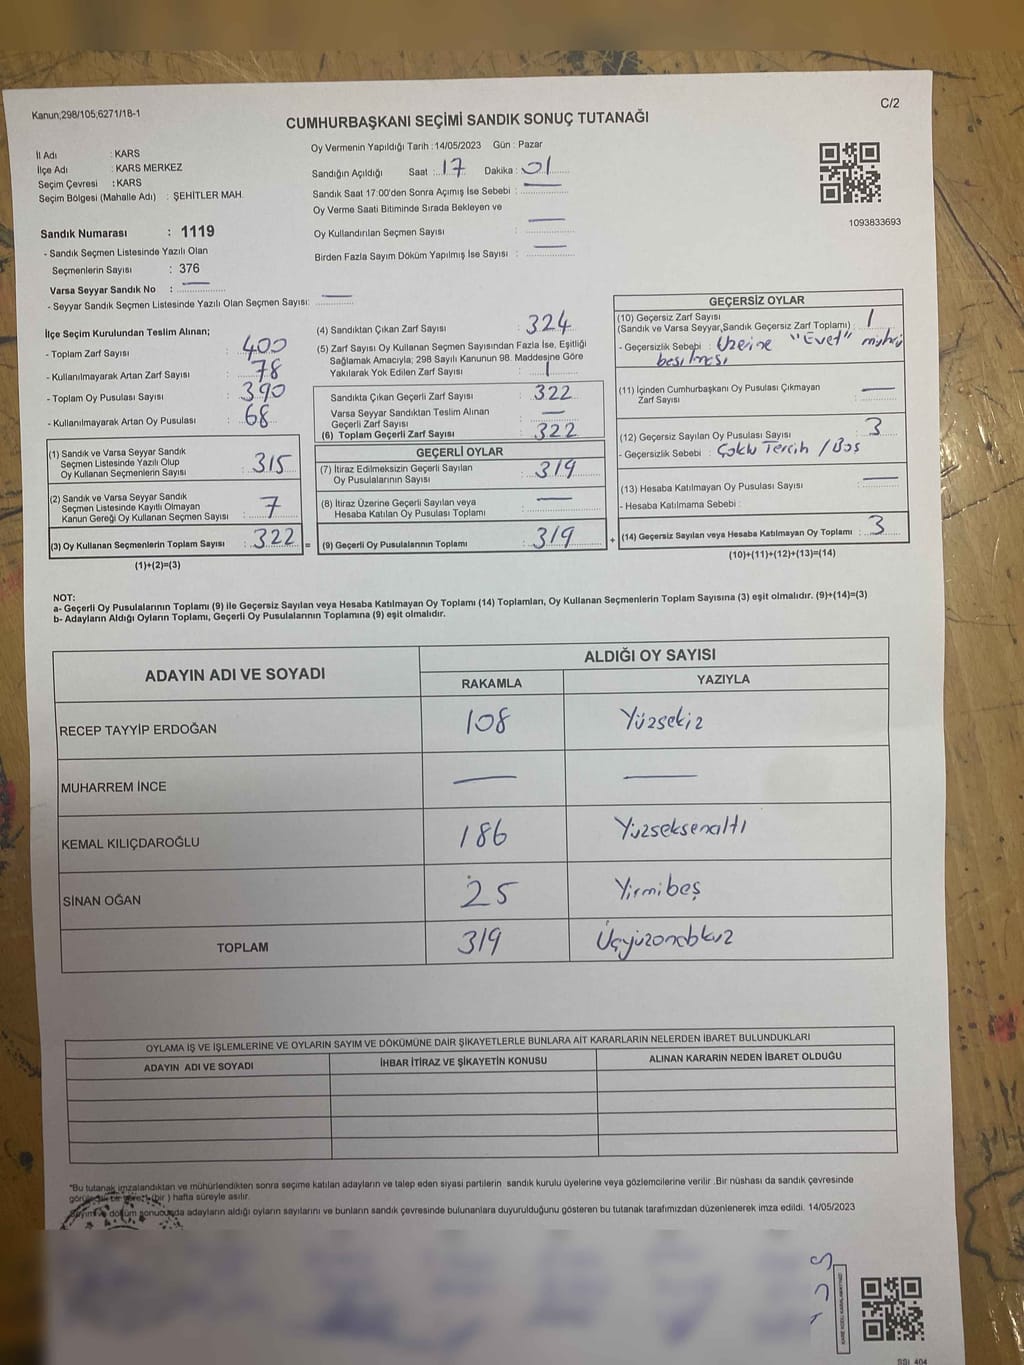 Kanun;298/105;6271/18-1
C/2
CUMHURBAŞKANI SEÇİMİ SANDIK SONUÇ TUTANAĞI
İl Adı : KARS
İlçe Adı : KARS MERKEZ
Seçim Çevresi : KARS
Seçim Bölgesi (Mahalle Adı) : ŞEHİTLER MAH.
Sandık Numarası : 1119
- Sandık Seçmen Listesinde Yazılı Olan
Seçmenlerin Sayısı : 376
Varsa Seyyar Sandık No : —
- Seyyar Sandık Seçmen Listesinde Yazılı Olan Seçmen Sayısı: —
Oy Vermenin Yapıldığı Tarih : 14/05/2023 Gün : Pazar
Sandığın Açıldığı Saat : 17 Dakika : 01
Sandık Saat 17:00'den Sonra Açımış İse Sebebi : —
Oy Verme Saati Bitiminde Sırada Bekleyen ve
Oy Kullandırılan Seçmen Sayısı : —
Birden Fazla Sayım Döküm Yapılmış İse Sayısı : —
1093833693
İlçe Seçim Kurulundan Teslim Alınan;
- Toplam Zarf Sayısı : 400
- Kullanılmayarak Artan Zarf Sayısı : 78
- Toplam Oy Pusulası Sayısı : 390
- Kullanılmayarak Artan Oy Pusulası : 68
(1) Sandık ve Varsa Seyyar Sandık
Seçmen Listesinde Yazılı Olup
Oy Kullanan Seçmenlerin Sayısı : 315
(2) Sandık ve Varsa Seyyar Sandık
Seçmen Listesinde Kayıtlı Olmayan
Kanun Gereği Oy Kullanan Seçmen Sayısı : 7
(3) Oy Kullanan Seçmenlerin Toplam Sayısı : 322 =
(1)+(2)=(3)
(4) Sandıktan Çıkan Zarf Sayısı : 324
(5) Zarf Sayısı Oy Kullanan Seçmen Sayısından Fazla İse, Eşitliği
Sağlamak Amacıyla; 298 Sayılı Kanunun 98. Maddesine Göre
Yakılarak Yok Edilen Zarf Sayısı : 1
Sandıkta Çıkan Geçerli Zarf Sayısı : 322
Varsa Seyyar Sandıktan Teslim Alınan
Geçerli Zarf Sayısı : —
(6) Toplam Geçerli Zarf Sayısı : 322
GEÇERLİ OYLAR
(7) İtiraz Edilmeksizin Geçerli Sayılan
Oy Pusulalarının Sayısı : 319
(8) İtiraz Üzerine Geçerli Sayılan veya
Hesaba Katılan Oy Pusulası Toplamı : —
(9) Geçerli Oy Pusulalarının Toplamı : 319 +
GEÇERSİZ OYLAR
(10) Geçersiz Zarf Sayısı
(Sandık ve Varsa Seyyar,Sandık Geçersiz Zarf Toplamı) : 1
- Geçersizlik Sebebi : Üzerine "Evet" mührü
basılması
(11) İçinden Cumhurbaşkanı Oy Pusulası Çıkmayan
Zarf Sayısı : —
(12) Geçersiz Sayılan Oy Pusulası Sayısı : 3
- Geçersizlik Sebebi : Çoklu Tercih / Boş
(13) Hesaba Katılmayan Oy Pusulası Sayısı : —
- Hesaba Katılmama Sebebi :
(14) Geçersiz Sayılan veya Hesaba Katılmayan Oy Toplamı : 3
(10)+(11)+(12)+(13)=(14)
NOT:
a- Geçerli Oy Pusulalarının Toplamı (9) ile Geçersiz Sayılan veya Hesaba Katılmayan Oy Toplamı (14) Toplamları, Oy Kullanan Seçmenlerin Toplam Sayısına (3) eşit olmalıdır. (9)+(14)=(3)
b- Adayların Aldığı Oyların Toplamı, Geçerli Oy Pusulalarının Toplamına (9) eşit olmalıdır.
ADAYIN ADI VE SOYADI ALDIĞI OY SAYISI
RAKAMLA YAZIYLA
RECEP TAYYİP ERDOĞAN 108 Yüzsekiz
MUHARREM İNCE — —
KEMAL KILIÇDAROĞLU 186 Yüzseksenaltı
SİNAN OĞAN 25 Yirmibeş
TOPLAM 319 Üçyüzondokuz
OYLAMA İŞ VE İŞLEMLERİNE VE OYLARIN SAYIM VE DÖKÜMÜNE DAİR ŞİKAYETLERLE BUNLARA AİT KARARLARIN NELERDEN İBARET BULUNDUKLARI
ADAYIN ADI VE SOYADI İHBAR İTİRAZ VE ŞİKAYETİN KONUSU ALINAN KARARIN NEDEN İBARET OLDUĞU
"Bu tutanak imzalandıktan ve mühürlendikten sonra seçime katılan adayların ve talep eden siyasi partilerin sandık kurulu üyelerine veya gözlemcilerine verilir .Bir nüshası da sandık çevresinde
bir ) hafta süreyle asılır.
döküm sonucunda adayların aldığı oyların sayılarını ve bunların sandık çevresinde bulunanlara duyurulduğunu gösteren bu tutanak tarafımızdan düzenlenerek imza edildi. 14/05/2023